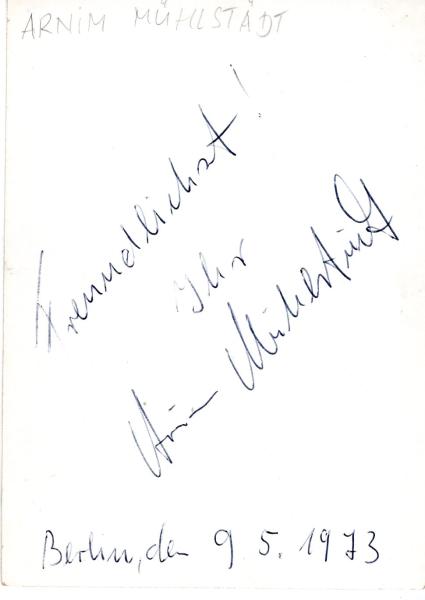 ARNIM MÜHLSTÄDT
Freundlichst!
Ihr
Arnim Mühlstädt
Berlin, den 9 5. 1973